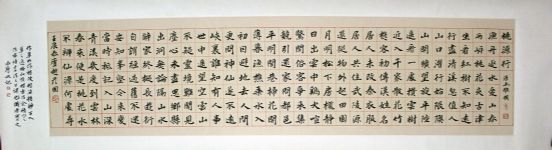 桃源行
漁舟逐水愛山春
兩岸桃花夾古津
坐看紅樹不知遠
行盡清溪忽值人
山口潛行始隈隩
山開曠望旋平陸
遙看一處攢雲樹
近入千家散花竹
樵客初傳漢姓名
居人未改秦衣服
居人共住武陵源
還從物外起田園
月明松下房櫳靜
日出雲中雞犬喧
驚聞俗客爭來集
競引還家問都邑
平明閭巷掃花開
薄暮漁樵乘水入
初因避地去人間
更問神仙遂不還
峽裏誰知有人事
世中遙望空雲山
不疑靈境難聞見
塵心未盡思鄉縣
出洞無論隔山水
辭家終擬長遊衍
自謂經過舊不迷
安知峰壑今來變
當時只記入山深
青溪幾度到雲林
春來遍是桃花水
不辨仙源何處尋